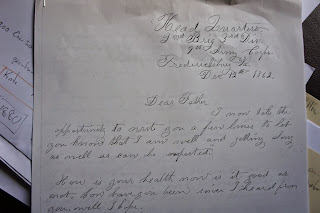 Head Quarters
2nd Brig 2nd Div
9th Army Corps
Fredericksburg Va.
Dec 12th 1862.
Dear Father
I now take the
opportunity to write you a few lines to let
you know that I am well and getting along
as well as can be expected.
How is your health now is it good as
not. How have you been since I heard from
you well I hope.